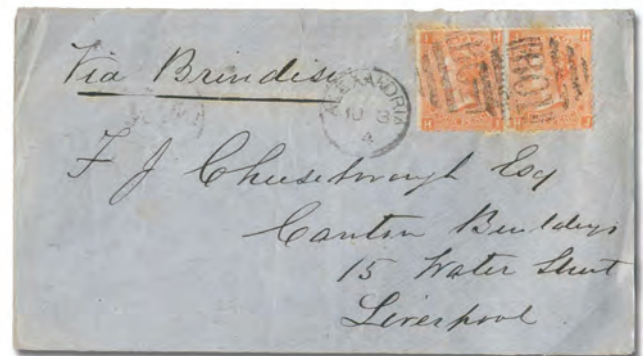 Via Brindisi
ALEXANDRIA
B01
F J Cheesebrough Esq
Canton Buildings
15 Water Street
Liverpool